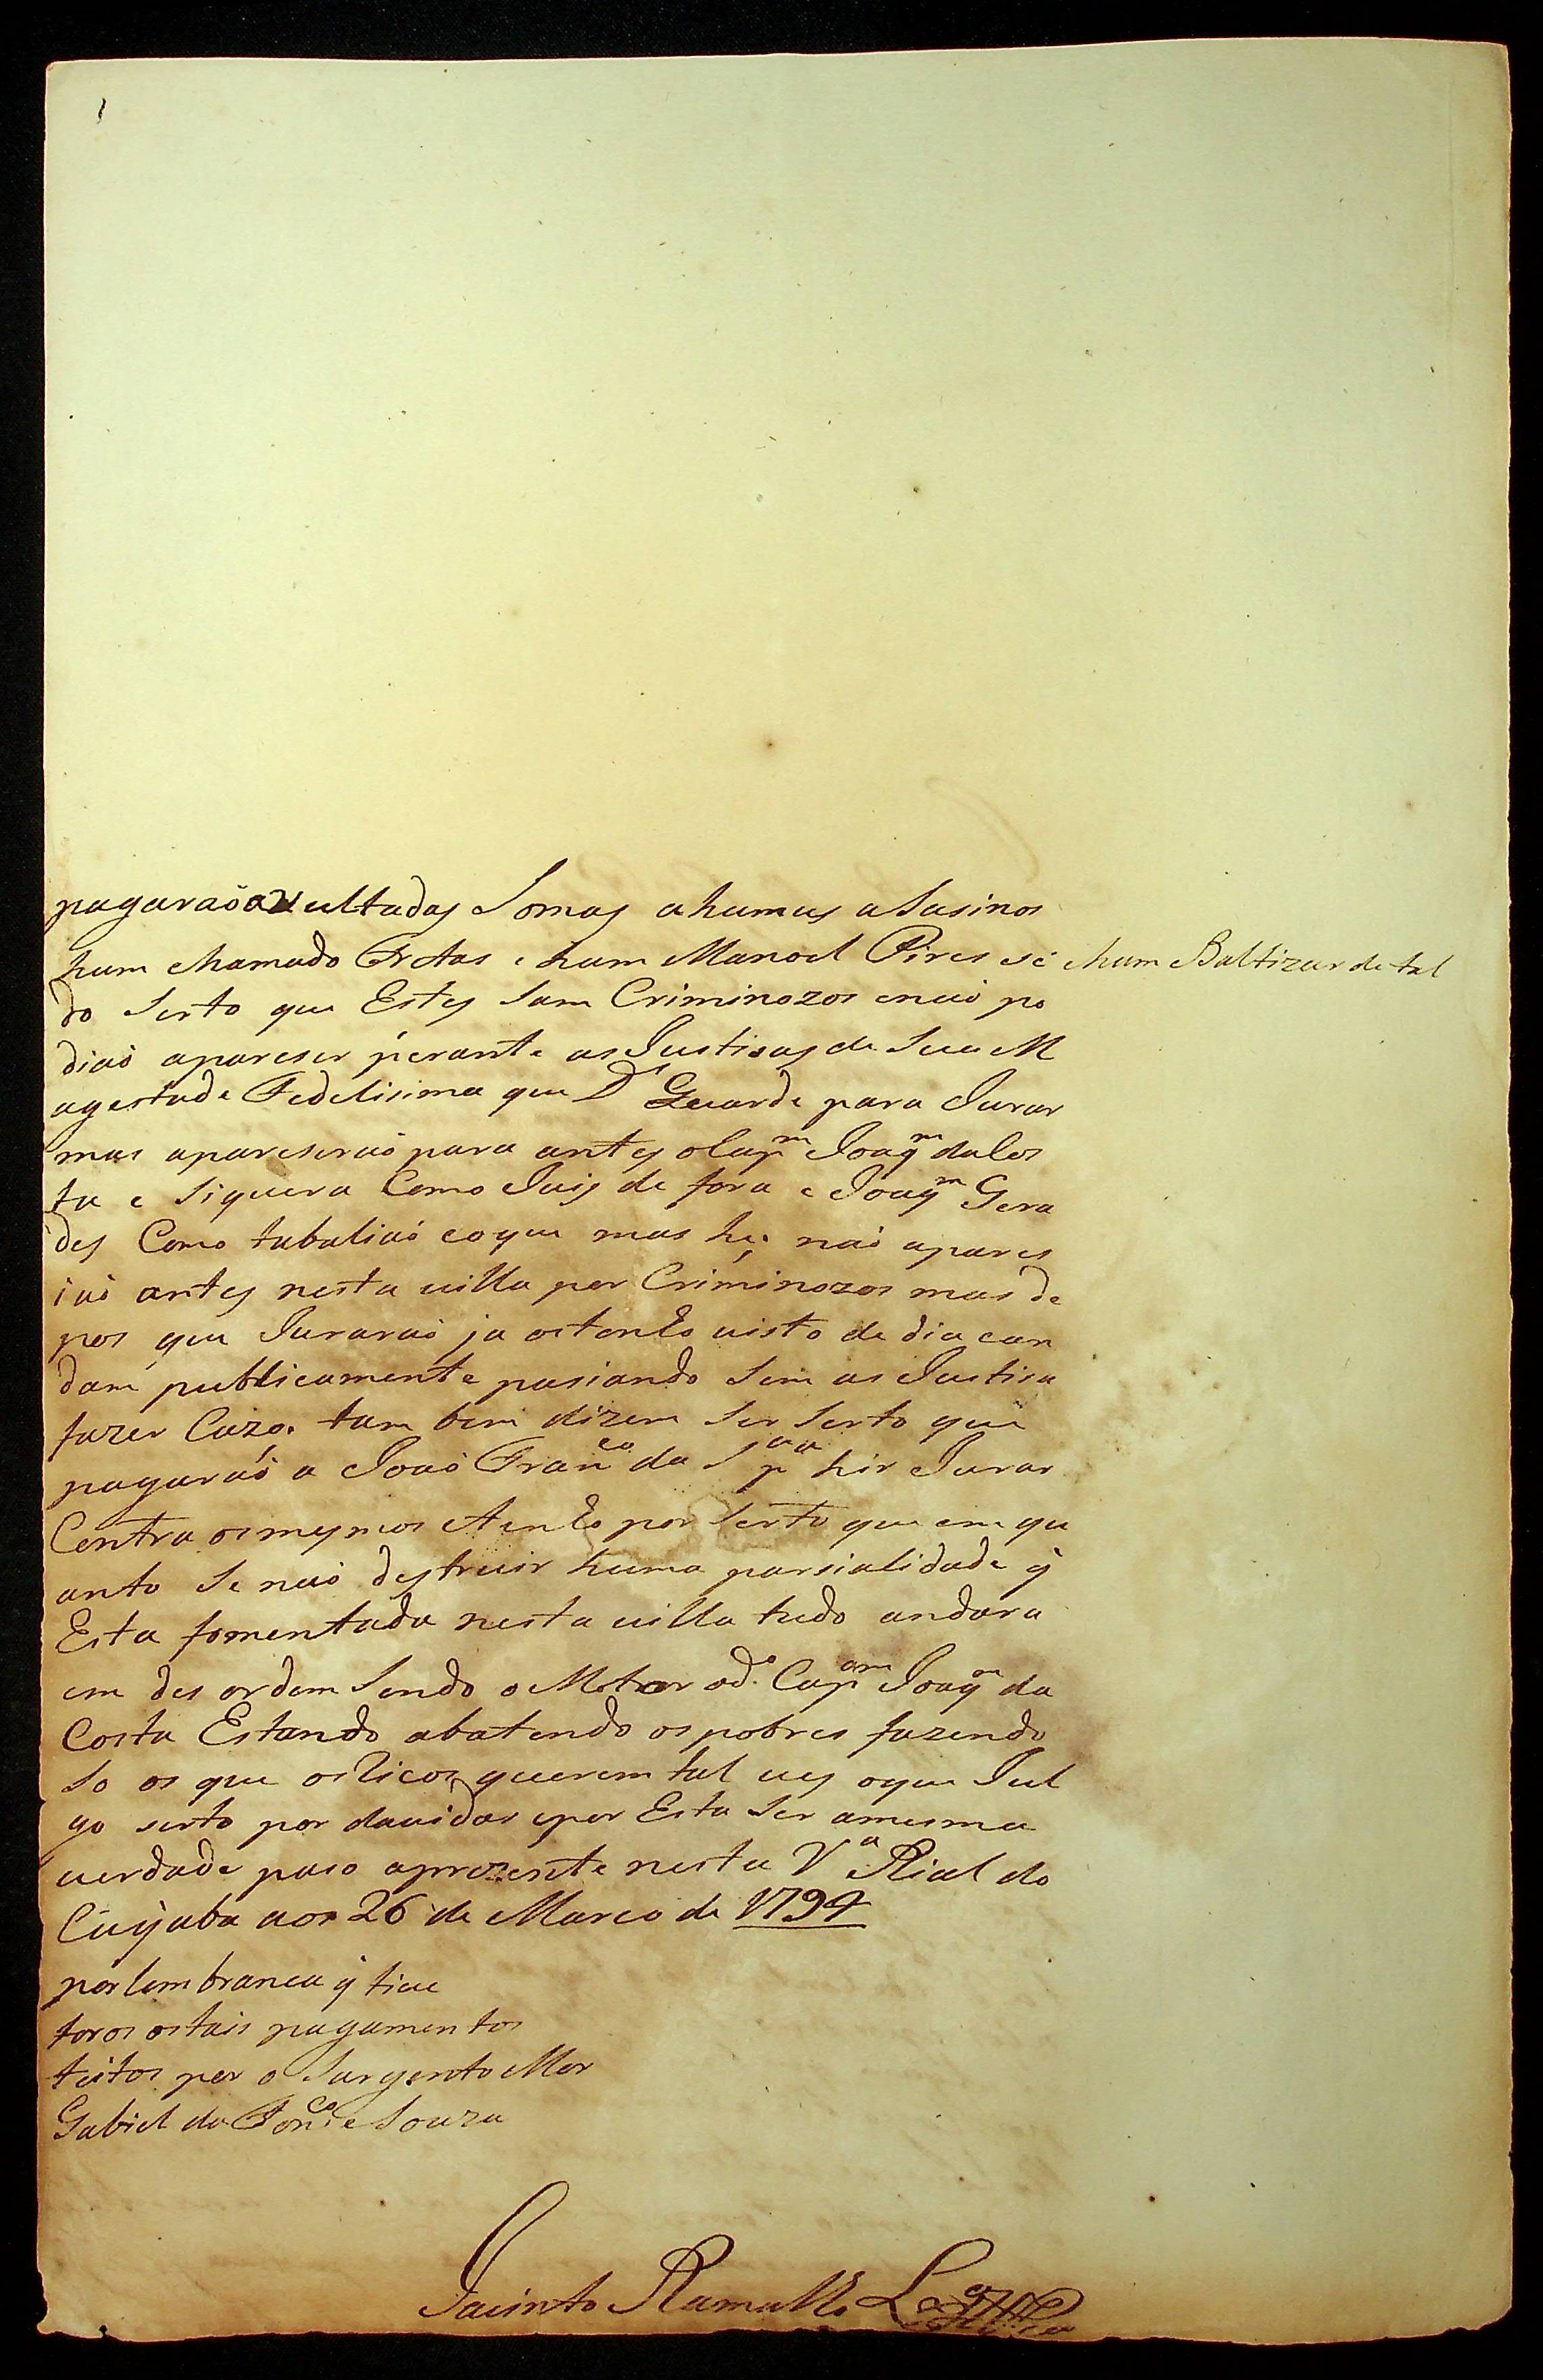 1
pagaraõ avultadas Somas ahumas aSasinos
hum chamado Fretas e hum Manoel Pires e sẽ ehum Baltizar de tal
do Serto que Estes Sam Criminozos enaõ po
diaõ apareser perante as Justisas de Sua M
agestade Fedelisima que Ds Guarde para Jurar
mas apareseraõ para antes o Capm Joaqm da Cos
ta e Siquera Como Juis de fora e Joaqm Gera
des Como tabaliaõ eoque mas he, naõ apares
iaõ antes nesta uilla por Criminozos mas de
pos que Juraraõ ja os tenho uisto de dia e an
dam publicamente pasiando Sem as Justisa
fazer Cazo. tam bem dizem Ser Serto que
pagaraõ a Joaõ Franco da Sa pa hir Jurar
Contra os mesmos e tenho por Serto que em qu
anto Se naõ destruir huma parsialidade q̃
Esta fomentada nesta uilla tudo andara
em des ordem Sendo o Motor o do. Capam Joaqm da
Costa Estando abatendo os pobres fazendo
So os que os Ricos querem tal ues oque Jul
go serto por dauidas epor Esta Ser amesma
uerdade paso aprezente nesta Va Rial do
Cuyaba aos 26 de Marco de 1794
por lembranca q̃ tiue
foros os tais pagamentos
feitos por o Sargento Mor
Gabiel da Fonca e Souza
Jacinto Ramalho